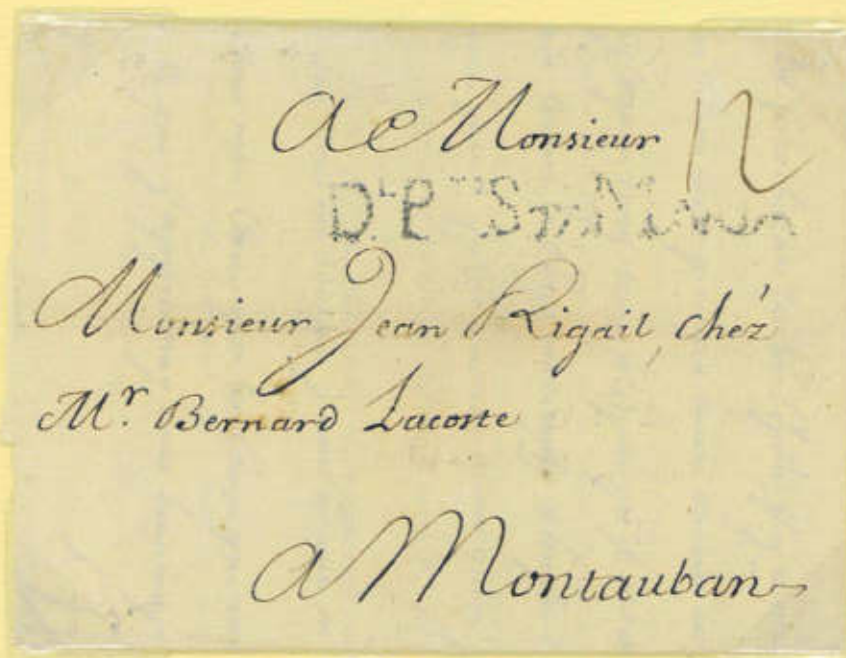 A Monsieur 12
Monsieur Jean Rigail, chéz
Mr. Bernard Lacoste
a Montauban